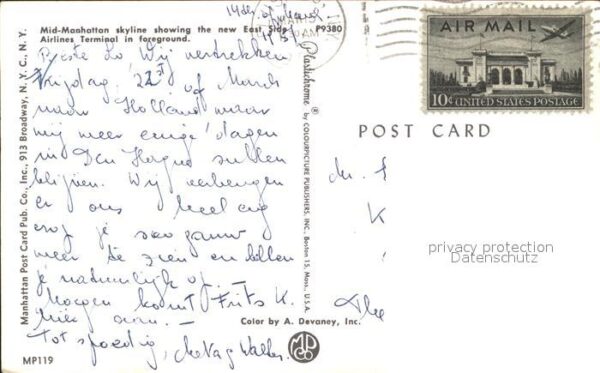 14de of March
Mid-Manhattan skyline showing the new East Side
Airlines Terminal in foreground.
P9380
Beste Lo Wij vertrekken
Vrijdag 21st of March
naar Holland waar
wij weer enige dagen
in Den Haag zullen
blijven. Wij verheugen
er ons heel erg
erop je zeer gauw
weer te zien en bellen
je natuurlijk op. —
Morgen komt Frits K.
hier
Tot spoedig,
Manhattan Post Card Pub. Co., Inc., 913 Broadway, N.Y.C., N.Y.
MP119
Plastichrome ® by COLOURPICTURE PUBLISHERS, INC., Boston 15, Mass., U.S.A.
Color by A. Devaney, Inc.
MP
Co
AIR MAIL
10¢ UNITED STATES POSTAGE
POST CARD
K
The
privacy protection
Datenschutz